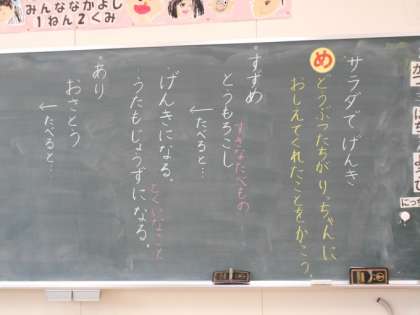 みんななかよし
1ねん2くみ
サラダで げんき
め
どうぶつたちがりっちゃんに
おしえてくれたことをかこう。
・すずめ
とうもろこし
すきなたべもの
↓ たべると…
・げんきになる。
・うたもじょうずになる。
とくいなこと
・あり
おさとう
↓ たべると…
にっち